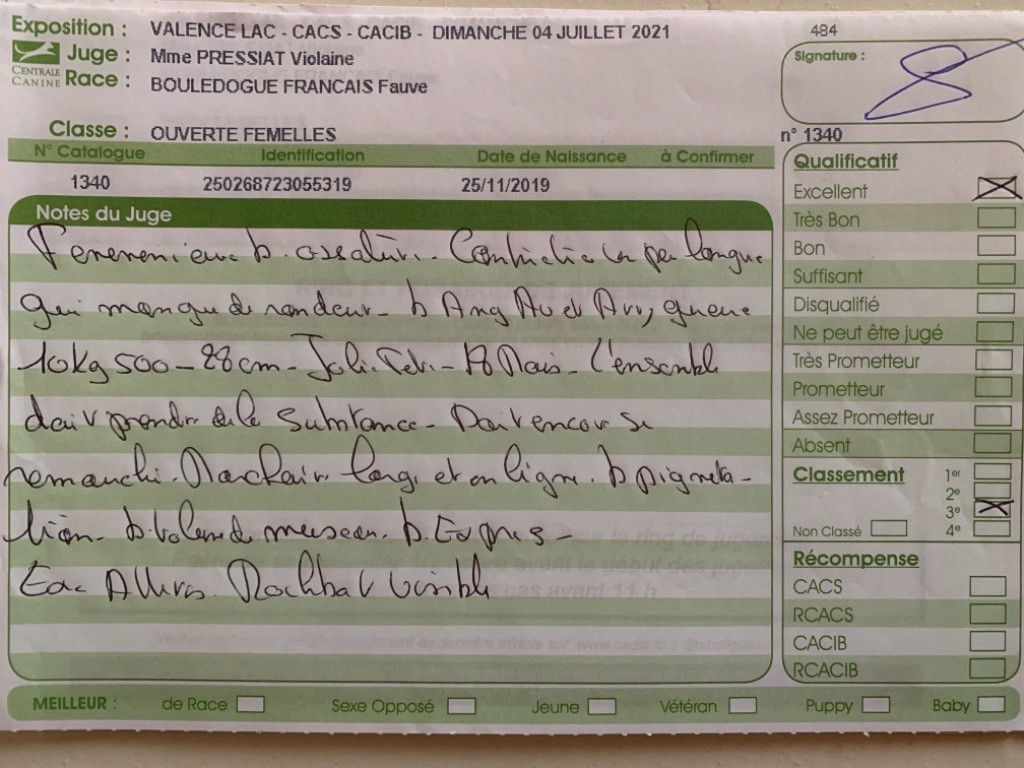 Exposition : VALENCE LAC - CACS - CACIB - DIMANCHE 04 JUILLET 2021
CENTRALE CANINE
Juge : Mme PRESSIAT Violaine
Race : BOULEDOGUE FRANCAIS Fauve
Classe : OUVERTE FEMELLES
484
Signature :
n° 1340
N° Catalogue Identification Date de Naissance à Confirmer
1340 250268723055319 25/11/2019
Notes du Juge
b. ossature. un peu longue
qui manque de rondeur - b Ang Av et Arr, queue
10kg500 - 28cm - Jolie Tete - Mais - L'ensemble
doit prendre de la substance - Doit encore se
longe et en ligne. b pigmenta-
tion - b. volume de museau. b. Expres -
Exc Allures.
Qualificatif
Excellent
Très Bon
Bon
Suffisant
Disqualifié
Ne peut être jugé
Très Prometteur
Prometteur
Assez Prometteur
Absent
Classement 1er
2e
3e
Non Classé 4e
Récompense
CACS
RCACS
CACIB
RCACIB
MEILLEUR : de Race Sexe Opposé Jeune Vétéran Puppy Baby